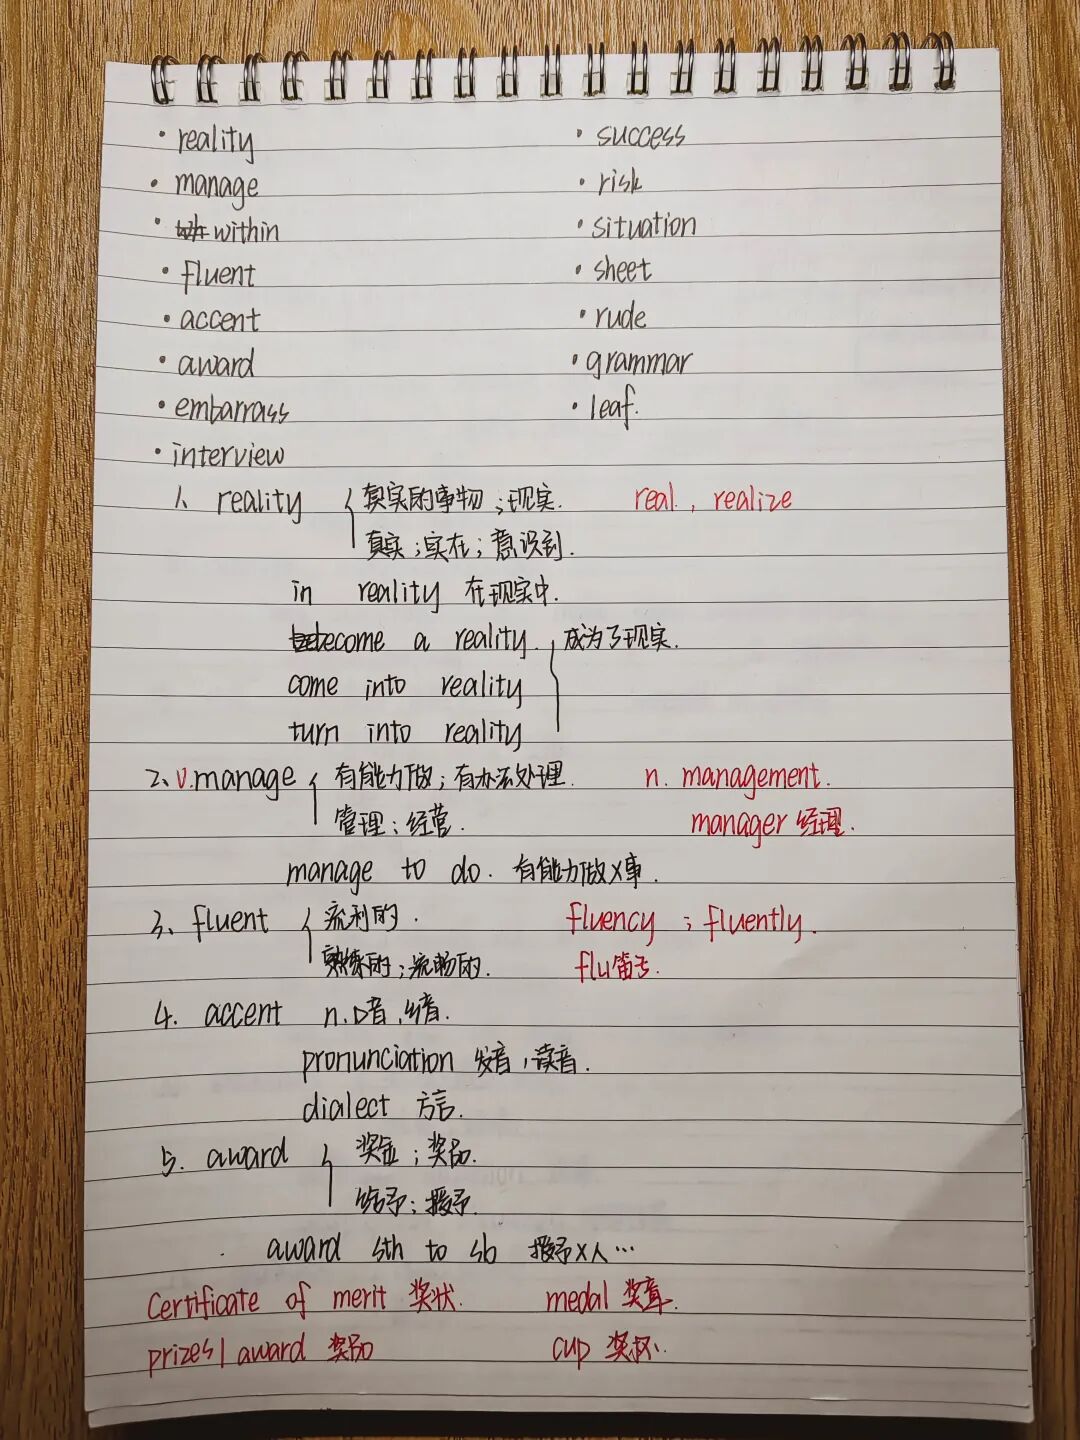 • reality
• manage
• within
• fluent
• accent
• award
• embarrass
• interview
• success
• risk
• situation
• sheet
• rude
• grammar
• leaf.
1、 reality { 真实的事物；现实. real , realize
真实；实在；意识到.
in reality 在现实中.
become a reality. 成为了现实.
come into reality
turn into reality
2、v.manage { 有能力做；有办法处理. n. management.
管理；经营. manager 经理.
manage to do. 有能力做X事.
3、fluent { 流利的. fluency ; fluently.
熟练的；流畅的. flu笛子.
4. accent n.口音,
pronunciation 发音,读音.
dialect 方言.
5. award { 奖金；奖品.
给予；授予.
award sth to sb 授予X人…
Certificate of merit 奖状. medal 奖章.
prizes/award 奖品 cup 奖杯.